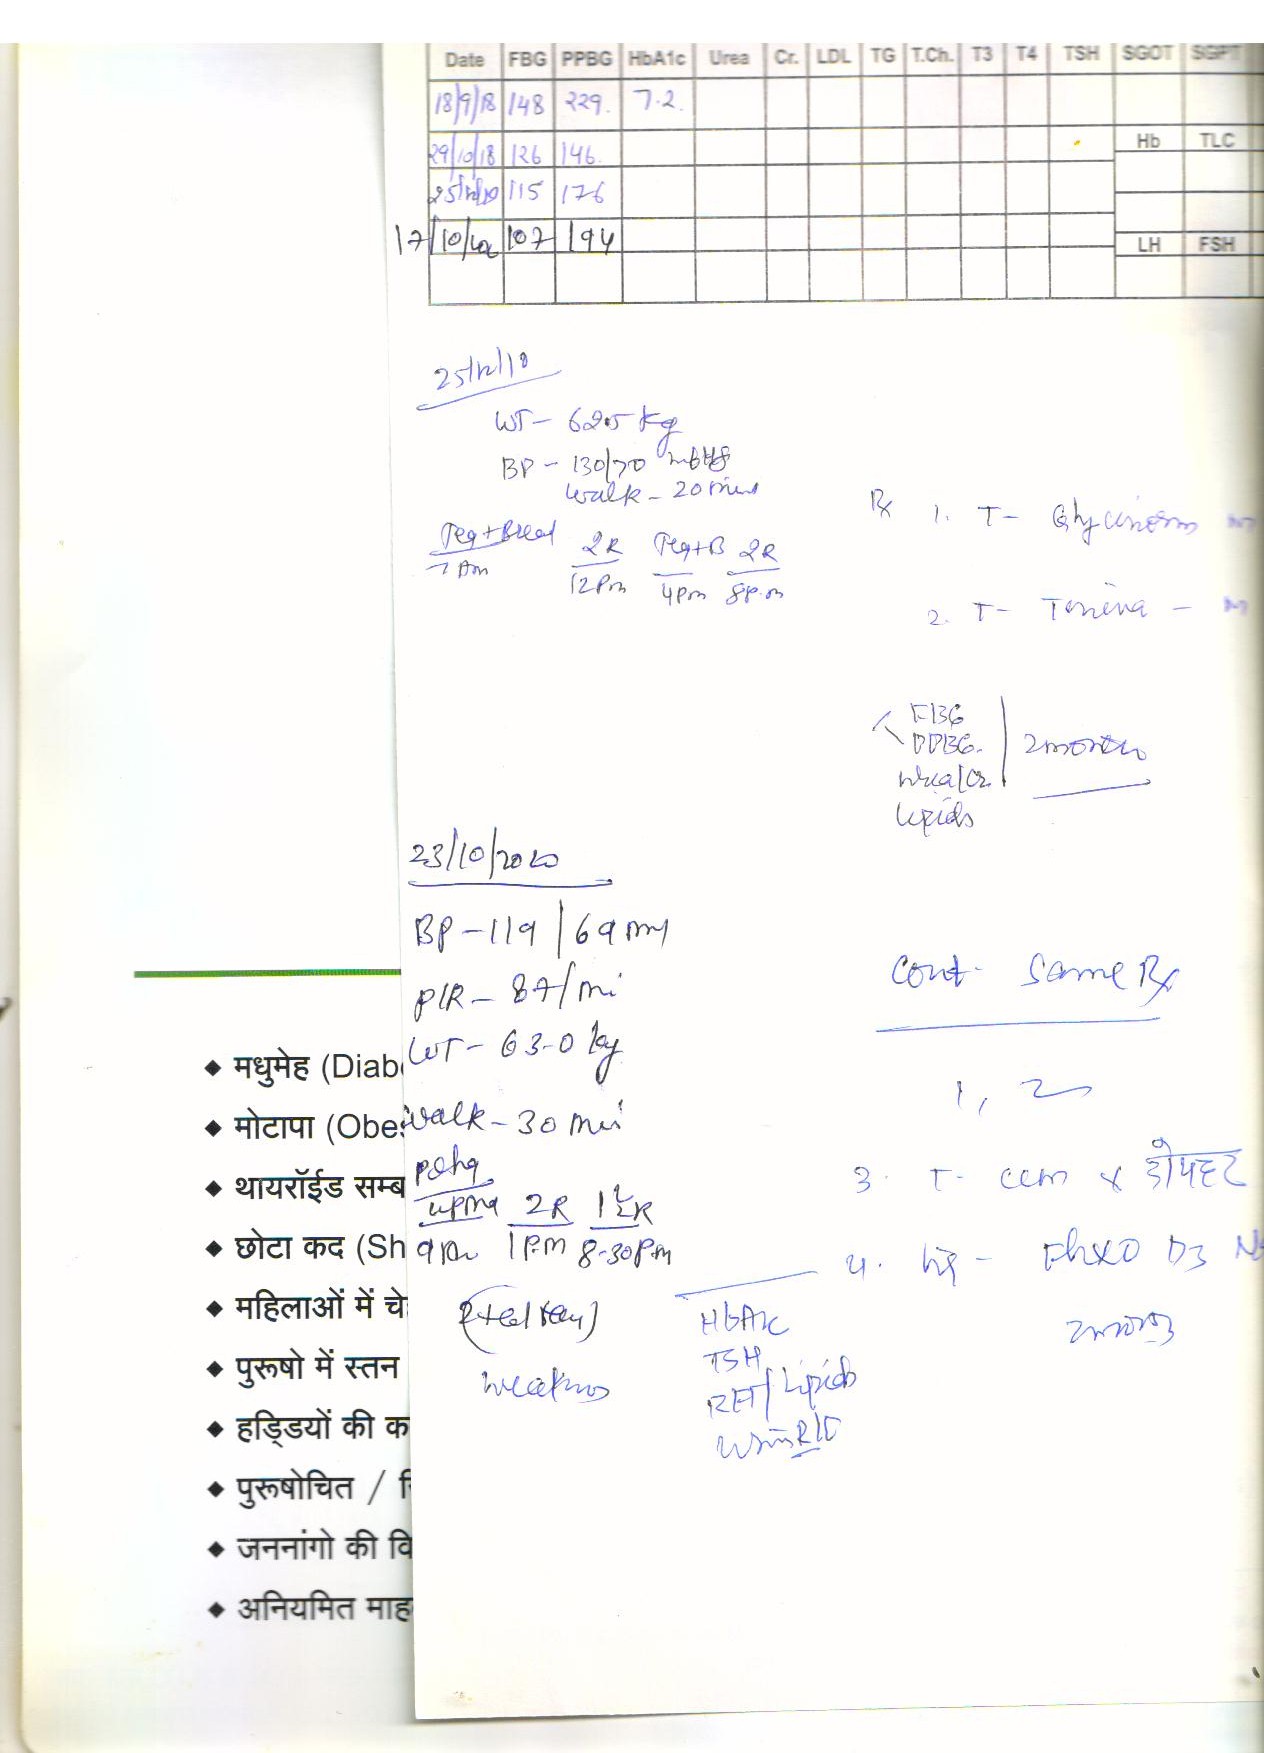 Date FBG PPBG HbA1c Urea Cr. LDL TG T.Ch. T3 T4 TSH SGOT SGPT
18/9/18 148 229. 7.2.
29/10/18 126 146.
Hb TLC
25/12/ 115 176
17/10/ 107 194
LH FSH
25/12/18
WT- 62.5 kg
BP - 130/70 mmHg
walk - 20 mins
Rx 1. T- Glycinorm
2R +B 2R
7 Am 12 Pm 4 Pm 8 P.m
2. T- Tenéva - M
FBG
PPBG. 2 month
urea/Cr.
Lipids
23/10/2020
BP - 119/69 mm
P/R - 87/mi
WT - 63.0 kg
walk - 30 min
Cont- Same Rx
1, 2
poha
upma 2R 1½R
9 Am 1 P.m 8-30 Pm
3. T- CCM x दोपहर
4. Inj - D3
weakness
HbA1c
TSH
RFT/Lipids
Urine R/E
◆ मधुमेह (Diab
◆ मोटापा (Obes
◆ थायरॉईड सम्ब
◆ छोटा कद (Sh
◆ महिलाओं में चे
◆ पुरूषो में स्तन
◆ हड्डियों की क
◆ पुरूषोचित /
◆ जननांगो की वि
◆ अनियमित माह